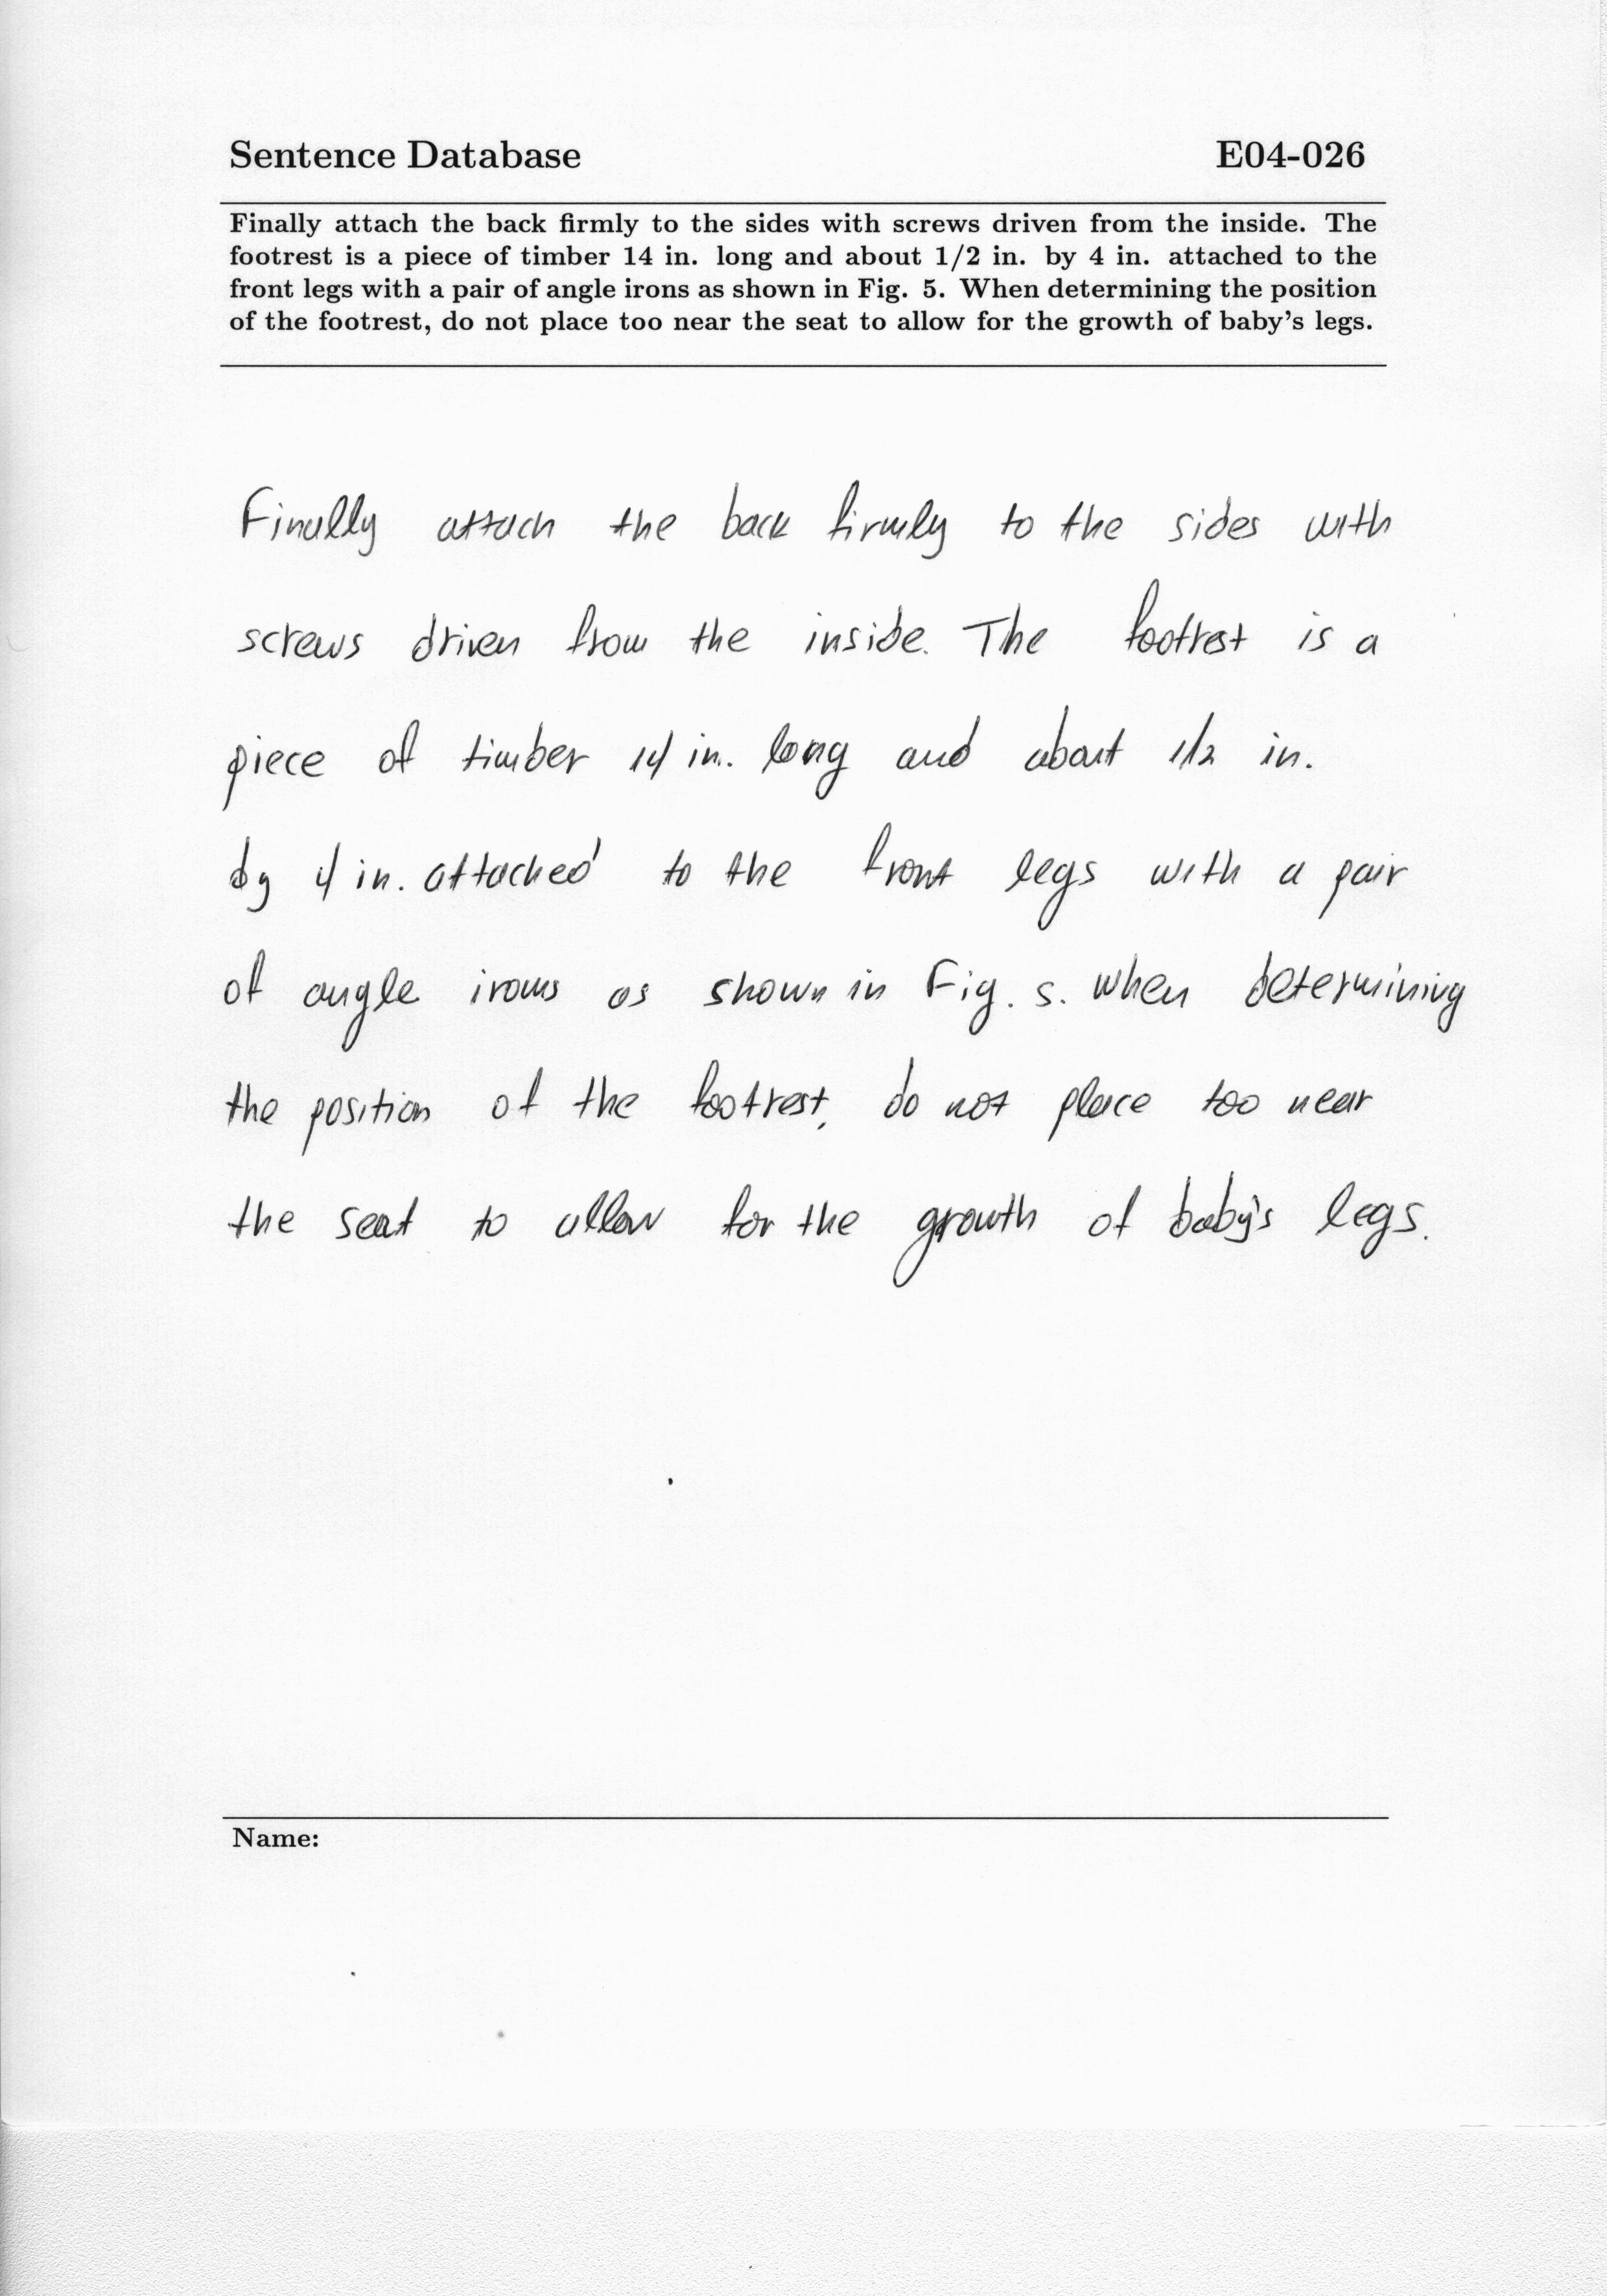 Sentence Database E04-026
Finally attach the back firmly to the sides with screws driven from the inside. The
footrest is a piece of timber 14 in. long and about 1/2 in. by 4 in. attached to the
front legs with a pair of angle irons as shown in Fig. 5. When determining the position
of the footrest, do not place too near the seat to allow for the growth of baby's legs.
Finally attach the back firmly to the sides with
screws driven from the inside. The footrest is a
piece of timber 14 in. long and about 1/2 in.
by 4 in. attached to the front legs with a pair
of angle irons as shown in Fig. 5. When determining
the position of the footrest, do not place too near
the seat to allow for the growth of baby's legs.
Name: